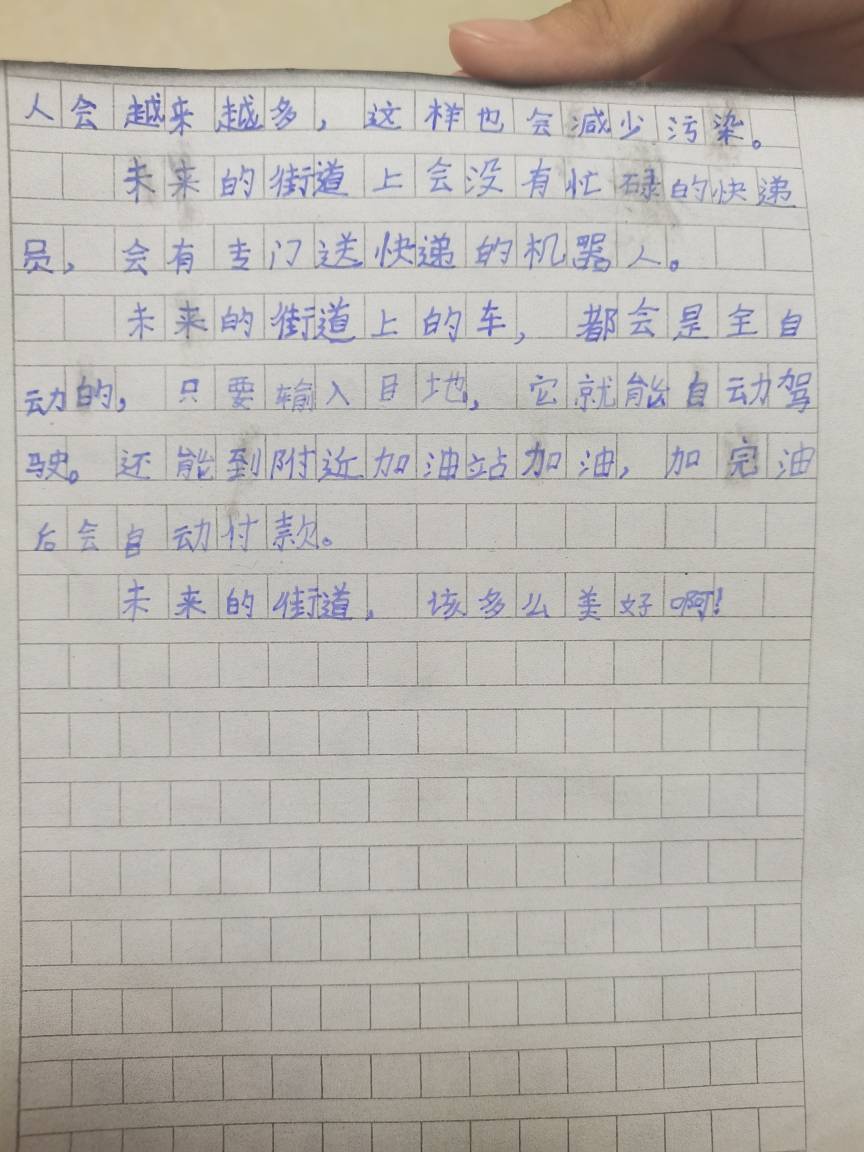 人会越来越多，这样也会减少污染。
未来的街道上会没有忙碌的快递
员，会有专门送快递的机器人。
未来的街道上的车，都会是全自
动的，只要输入目地，它就能自动驾
驶。还能到附近加油站加油，加完油
后会自动付款。
未来的街道，该多么美好啊！